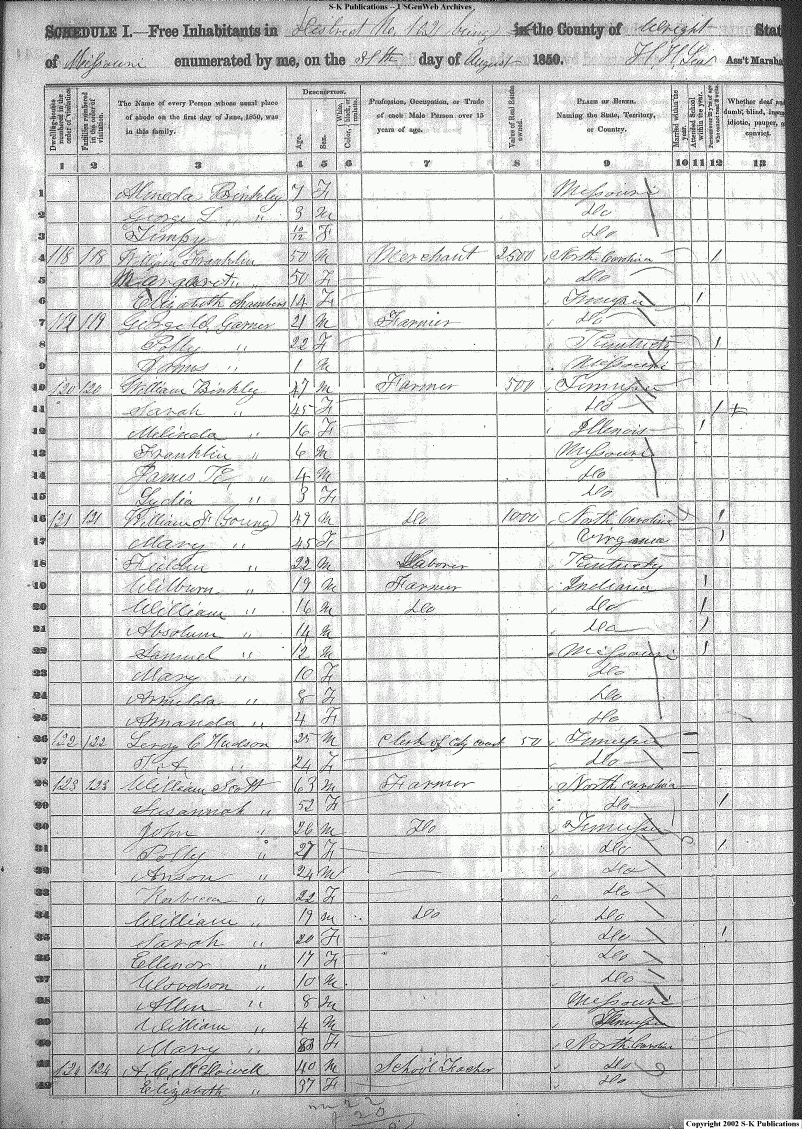 S-K Publications – USGenWeb Archives
SCHEDULE I.—Free Inhabitants in District No. 122 being in the County of Wright State
of Missouri enumerated by me, on the day of August 1850. Ass't Marshal
Dwelling-houses numbered in the order of visitation.
Families numbered in the order of visitation.
The Name of every Person whose usual place of abode on the first day of June, 1850, was in this family.
DESCRIPTION.
Age.
Sex.
Color, White, black, or mulatto.
Profession, Occupation, or Trade of each Male Person over 15 years of age.
Value of Real Estate owned.
PLACE OF BIRTH. Naming the State, Territory, or Country.
Married within the year.
Attended School within the year.
Whether deaf and dumb, blind, insane, idiotic, pauper, or convict.
1 2 3 4 5 6 7 8 9 10 11 12 13
1 Binkley 7 F Missouri
2 George L " 3 M Do
3 10/12 F Do
4 118 118 William Franklin 50 M Merchant 2500 North Carolina 1
5 Margaret " 50 F Do
6 Elizabeth Chambers 14 F 1
7 119 119 George W Garner 21 M Farmer Do
8 Polly " 22 F Kentucky 1
9 " 1 M Missouri
10 120 120 William Binkley 47 M Farmer 500
11 Sarah " 45 F Do 1
12 Melinda " 16 F Illinois 1
13 Franklin " 6 M Missouri
14 James " 4 M Do
15 Lydia " 3 F Do
16 121 121 William (Young) 49 M Do 1000 North Carolina 1
17 Mary " 45 F Virginia 1
18 " 22 M Laborer Kentucky
19 Wilburn " 19 M Farmer Indiana 1
20 William " 16 M Do Do 1
21 Absolum " 14 M Do 1
22 Samuel " 12 M Missouri 1
23 Mary " 10 F Do
24 " 8 F Do
25 Amanda " 4 F Do
26 122 122 Leroy C Hudson 25 M Clerk of City Court 50
27 " 24 F Do
28 123 123 William Scott 63 M Farmer North Carolina
29 Susannah " 52 F Do 1
30 John " 26 M Do
31 Polly " 27 F Do 1
32 Anson " 24 M Do
33 " 22 F Do
34 William " 19 M Do Do
35 Sarah " 20 F Do 1
36 Ellenor " 17 F Do
37 Woodson " 10 M Do
38 Allen " 8 M Missouri
39 William " 4 M
40 Mary " 83 F North Carolina
41 124 124 40 M School Teacher Do
42 Elizabeth " 37 F Do
Copyright 2002 S-K Publications